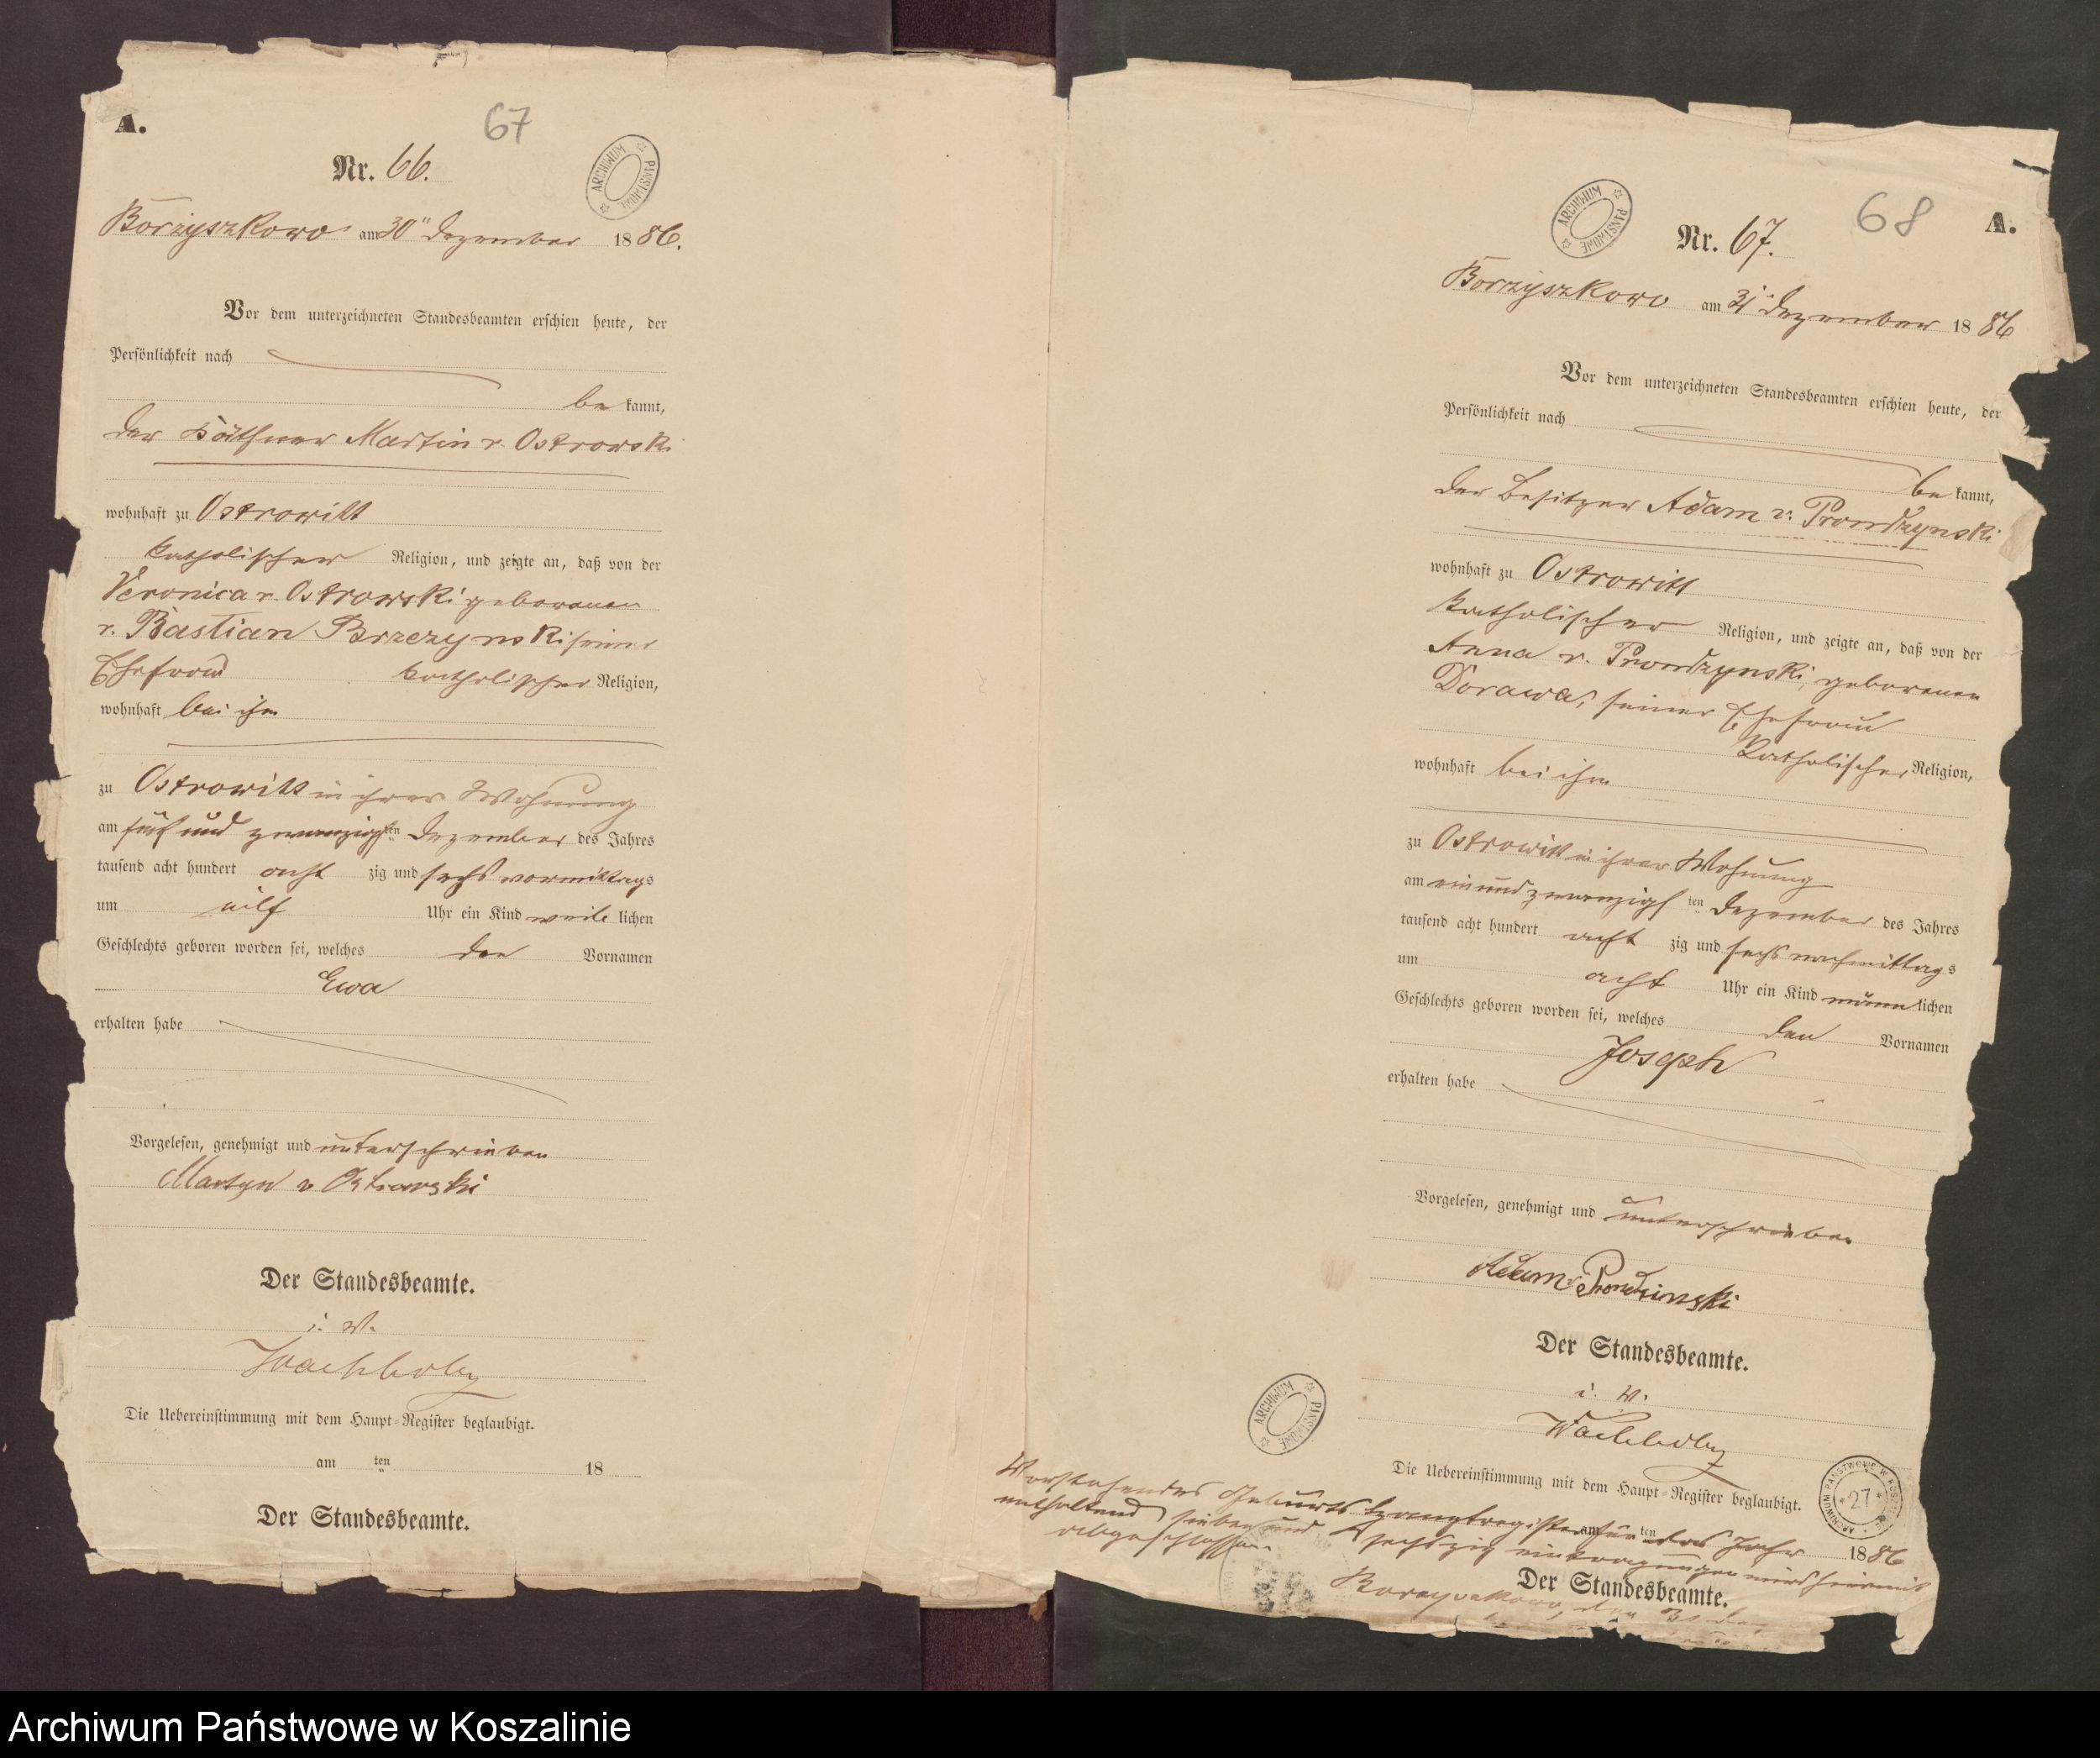 A.
67
Nr. 66.
ARCHIWUM PAŃSTWOWE
Borzyszkowo am 30" Dezember 1886.
Vor dem unterzeichneten Standesbeamten erschien heute, der
Persönlichkeit nach
be kannt,
der Käthner Martin v. Ostrowski
wohnhaft zu Ostrowitt
katholischer Religion, und zeigte an, daß von der
Veronica v. Ostrowski geborenen
v. Bastian Brzezynski seiner
Ehefrau katholischer Religion,
wohnhaft bei ihm
zu Ostrowitt in ihrer Wohnung
am fünf und zwanzigsten Dezember des Jahres
tausend acht hundert acht zig und sechs vormittags
um eilf Uhr ein Kind weib lichen
Geschlechts geboren worden sei, welches den Vornamen
Ewa
erhalten habe
Vorgelesen, genehmigt und unterschrieben
Martyn v Ostrowski
Der Standesbeamte.
i. V.
Die Uebereinstimmung mit dem Haupt-Register beglaubigt.
am ten 18
Der Standesbeamte.
ARCHIWUM PAŃSTWOWE
68
A.
Nr. 67.
Borzyszkowo am 31" Dezember 1886
Vor dem unterzeichneten Standesbeamten erschien heute, der
Persönlichkeit nach
be kannt,
der Besitzer Adam v. Prondzynski
wohnhaft zu Ostrowitt
katholischer Religion, und zeigte an, daß von der
Anna v. Prondzynski, geborenen
Dorawa, seiner Ehefrau
katholischer Religion,
wohnhaft bei ihm
zu Ostrowitt in ihrer Wohnung
am ein und zwanzigsten Dezember des Jahres
tausend acht hundert acht zig und sechs nachmittags
um acht Uhr ein Kind männ lichen
Geschlechts geboren worden sei, welches den Vornamen
Joseph
erhalten habe
Vorgelesen, genehmigt und unterschrieben
Adam v Prondzinski
Der Standesbeamte.
i. V.
Die Uebereinstimmung mit dem Haupt-Register beglaubigt.
ARCHIWUM PAŃSTWOWE
ARCHIWUM PAŃSTWOWE W KOSZALINIE
27
am ten 1886
Vorstehendes Geburts Hauptregister für das Jahr
enthaltend sieben und sechszig Eintragungen wird hiermit
abgeschlossen.
Der Standesbeamte.
Borzyszkowo, den 31
Archiwum Państwowe w Koszalinie